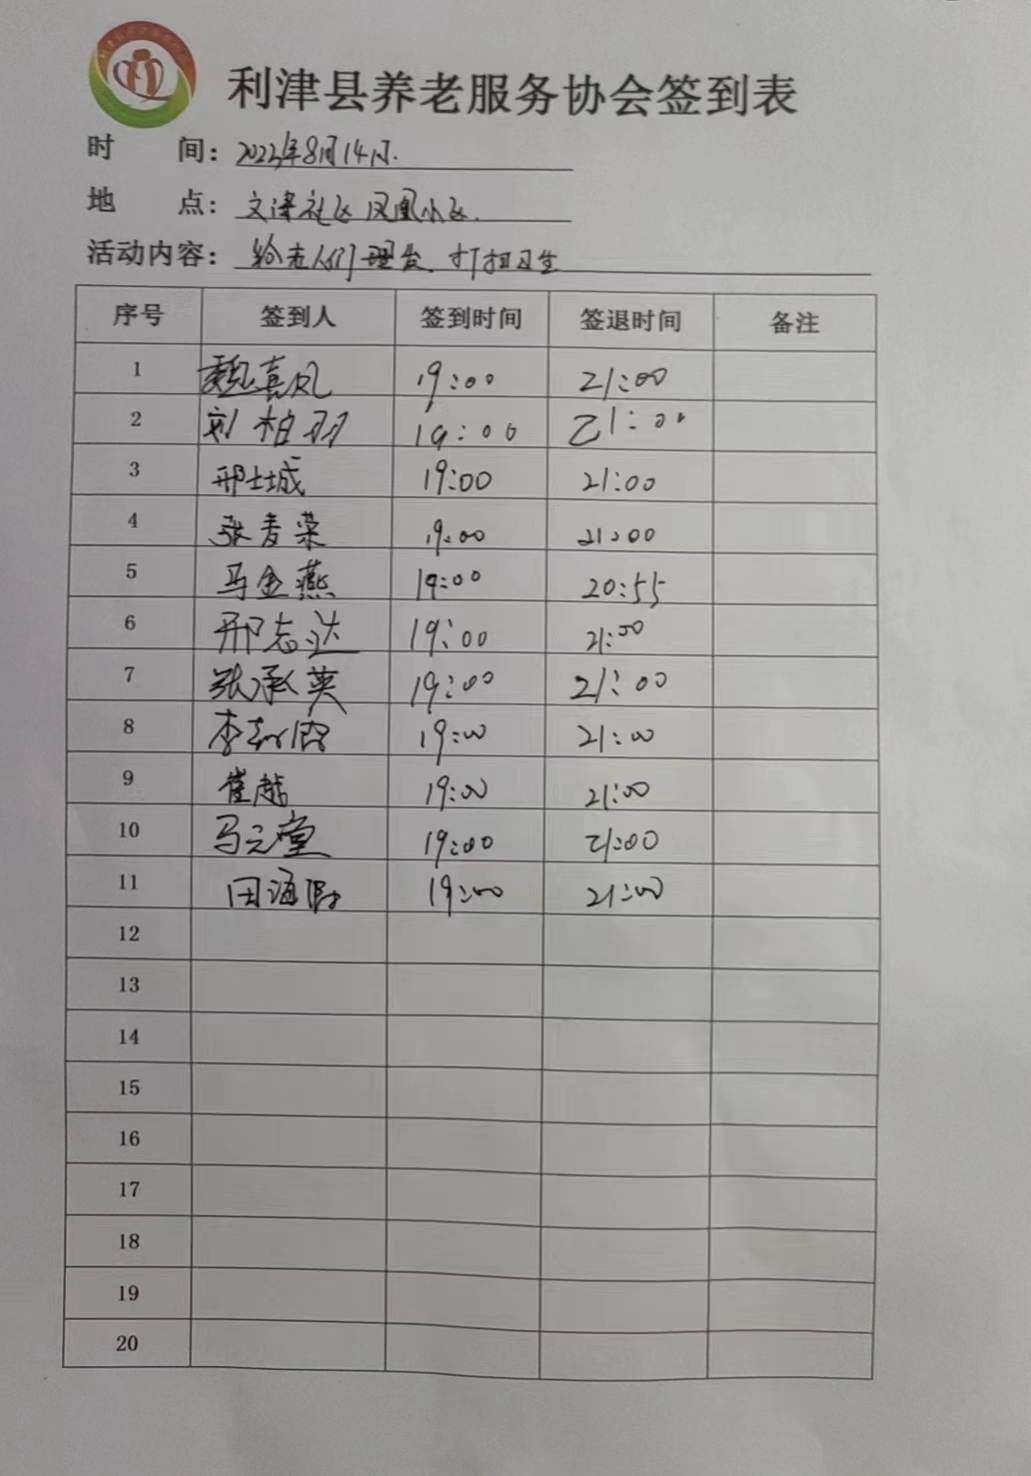 利津县养老服务协会签到表
时 间：2023年8月14日.
地 点：文津社区凤凰小区.
活动内容：给老人们理发、打扫卫生
序号 签到人 签到时间 签退时间 备注
1 魏喜凤 19:00 21:00
2 刘柏羽 19:00 21:00
3 邢士城 19:00 21:00
4 张秀荣 19:00 21:00
5 马金燕 19:00 20:55
6 邢志达 19:00 21:00
7 张承英 19:00 21:00
8 李 19:00 21:00
9 崔越 19:00 21:00
10 马云堂 19:00 21:00
11 田海 19:00 21:00
12
13
14
15
16
17
18
19
20